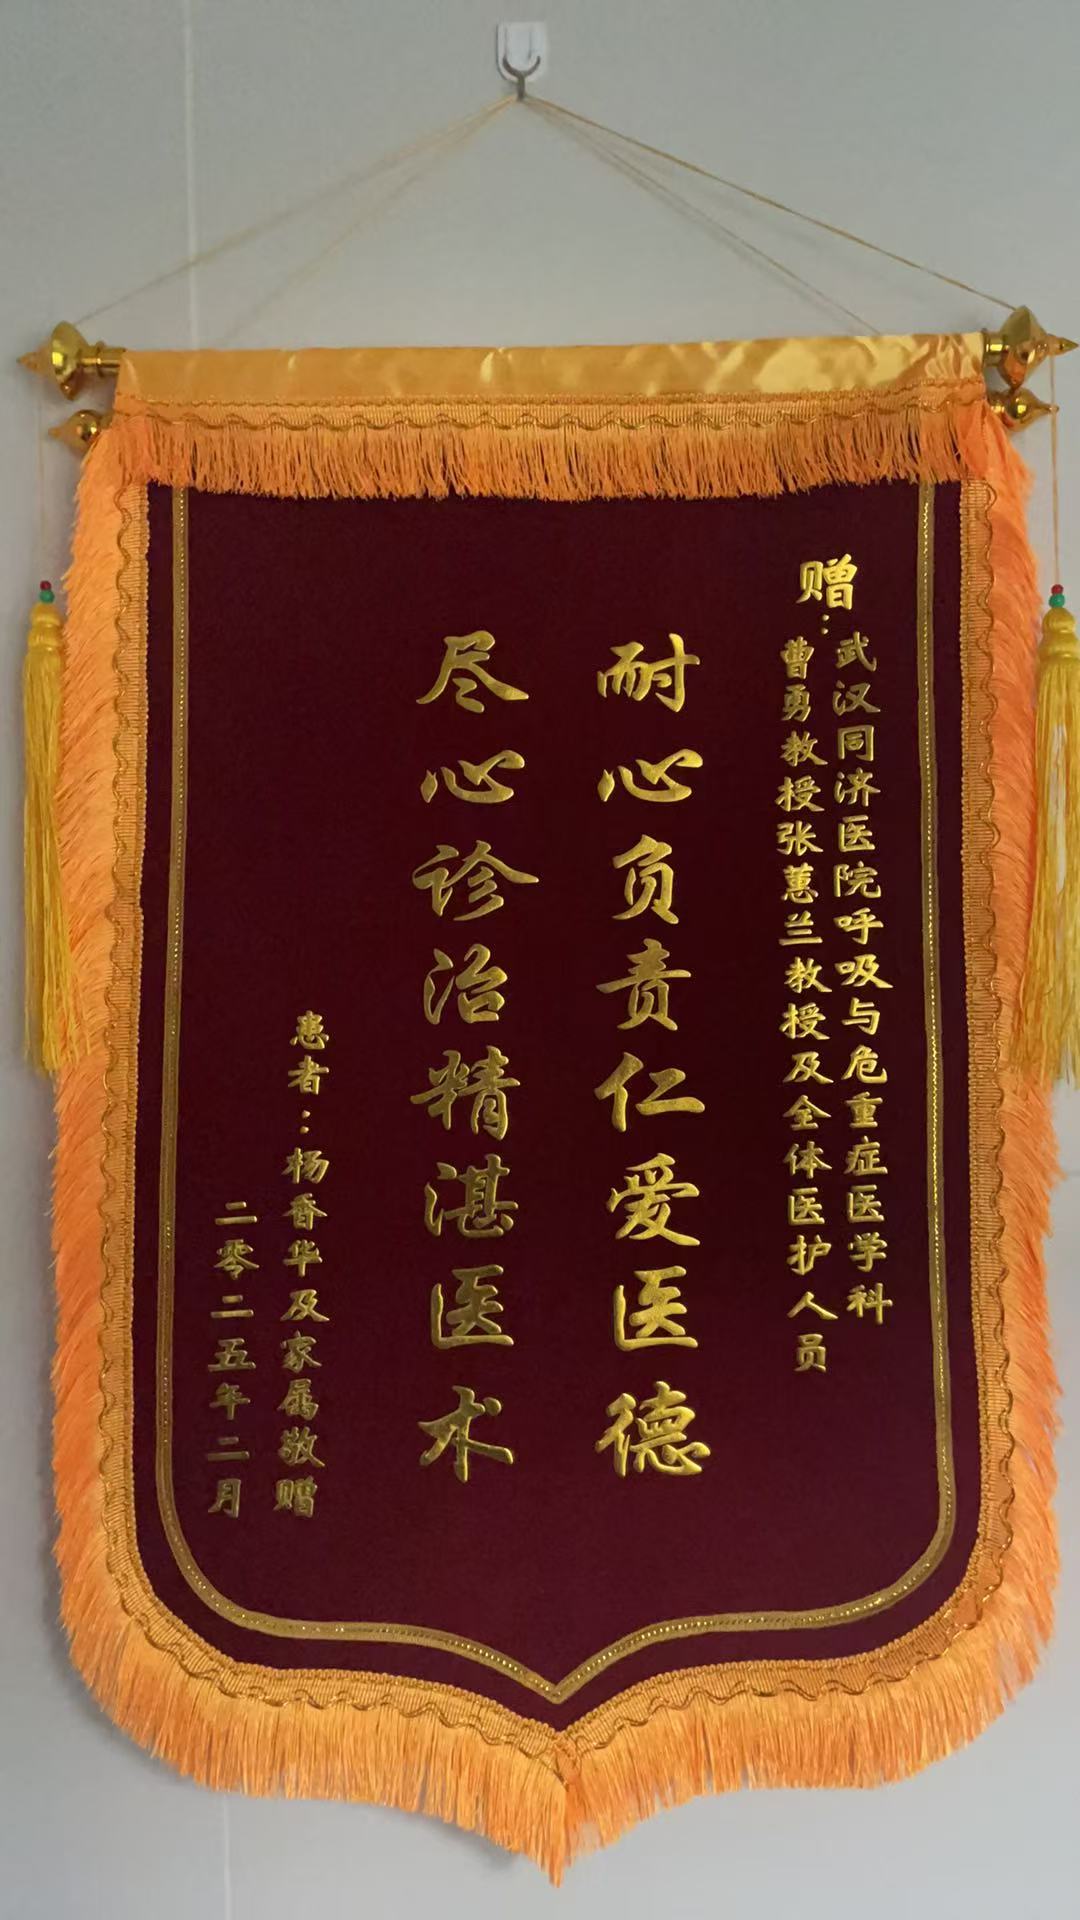 赠：
武汉同济医院呼吸与危重症医学科
曹勇教授张蕙兰教授及全体医护人员
耐心负责仁爱医德
尽心诊治精湛医术
患者：杨香华及家属敬赠
二零二五年二月